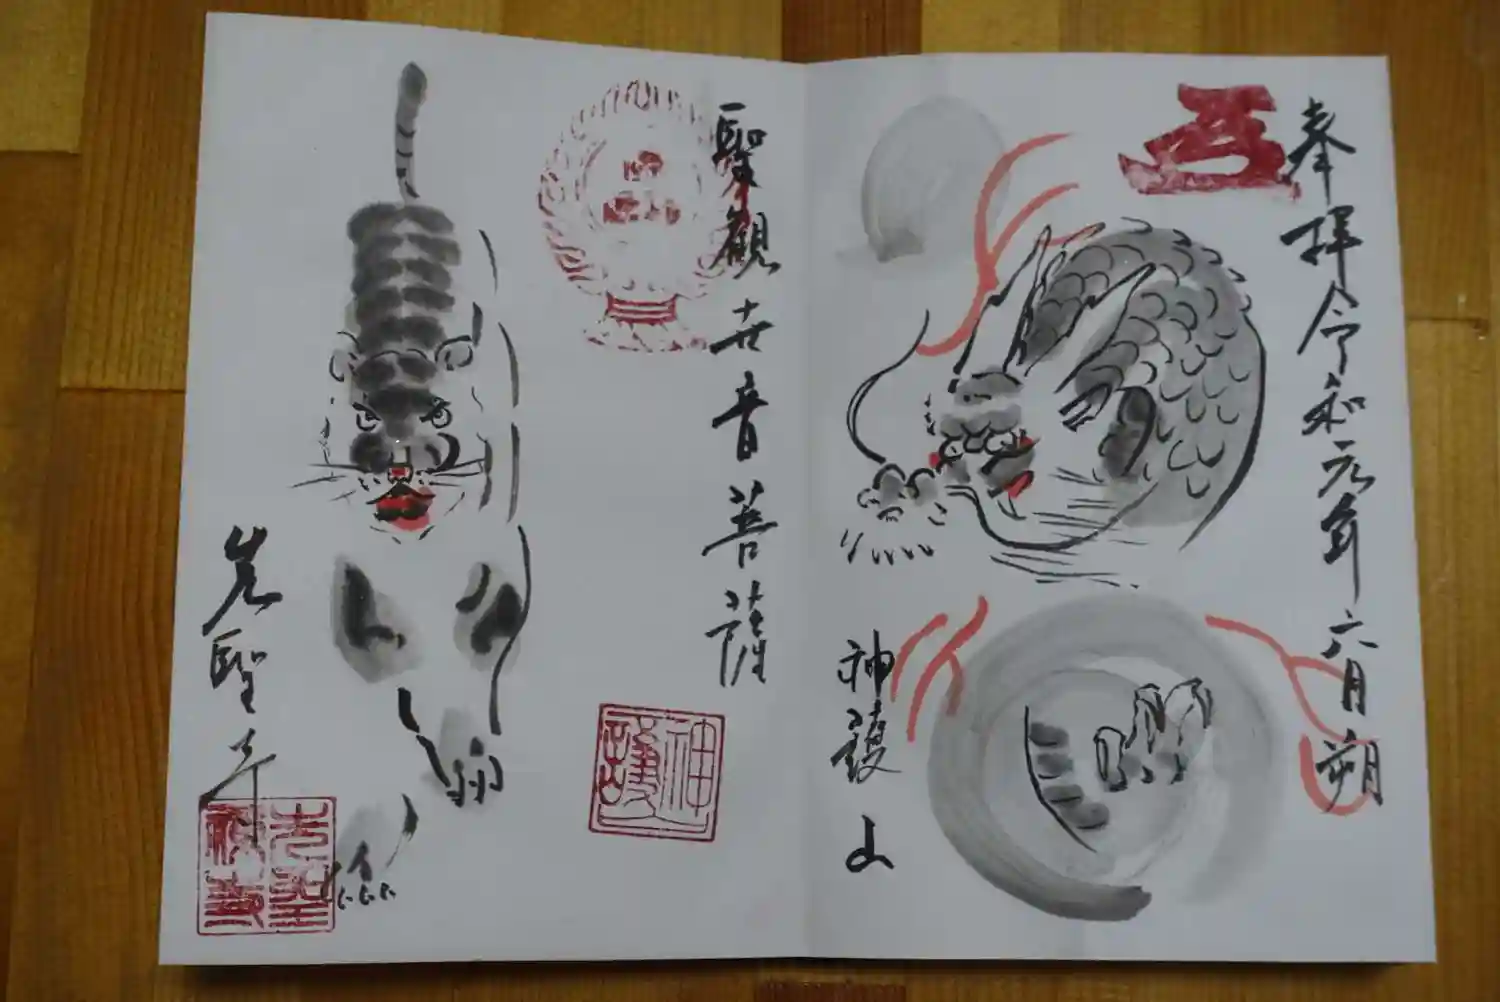 奉拝令和元年六月朔
神護山
聖観世音菩薩
神護
光聖寺